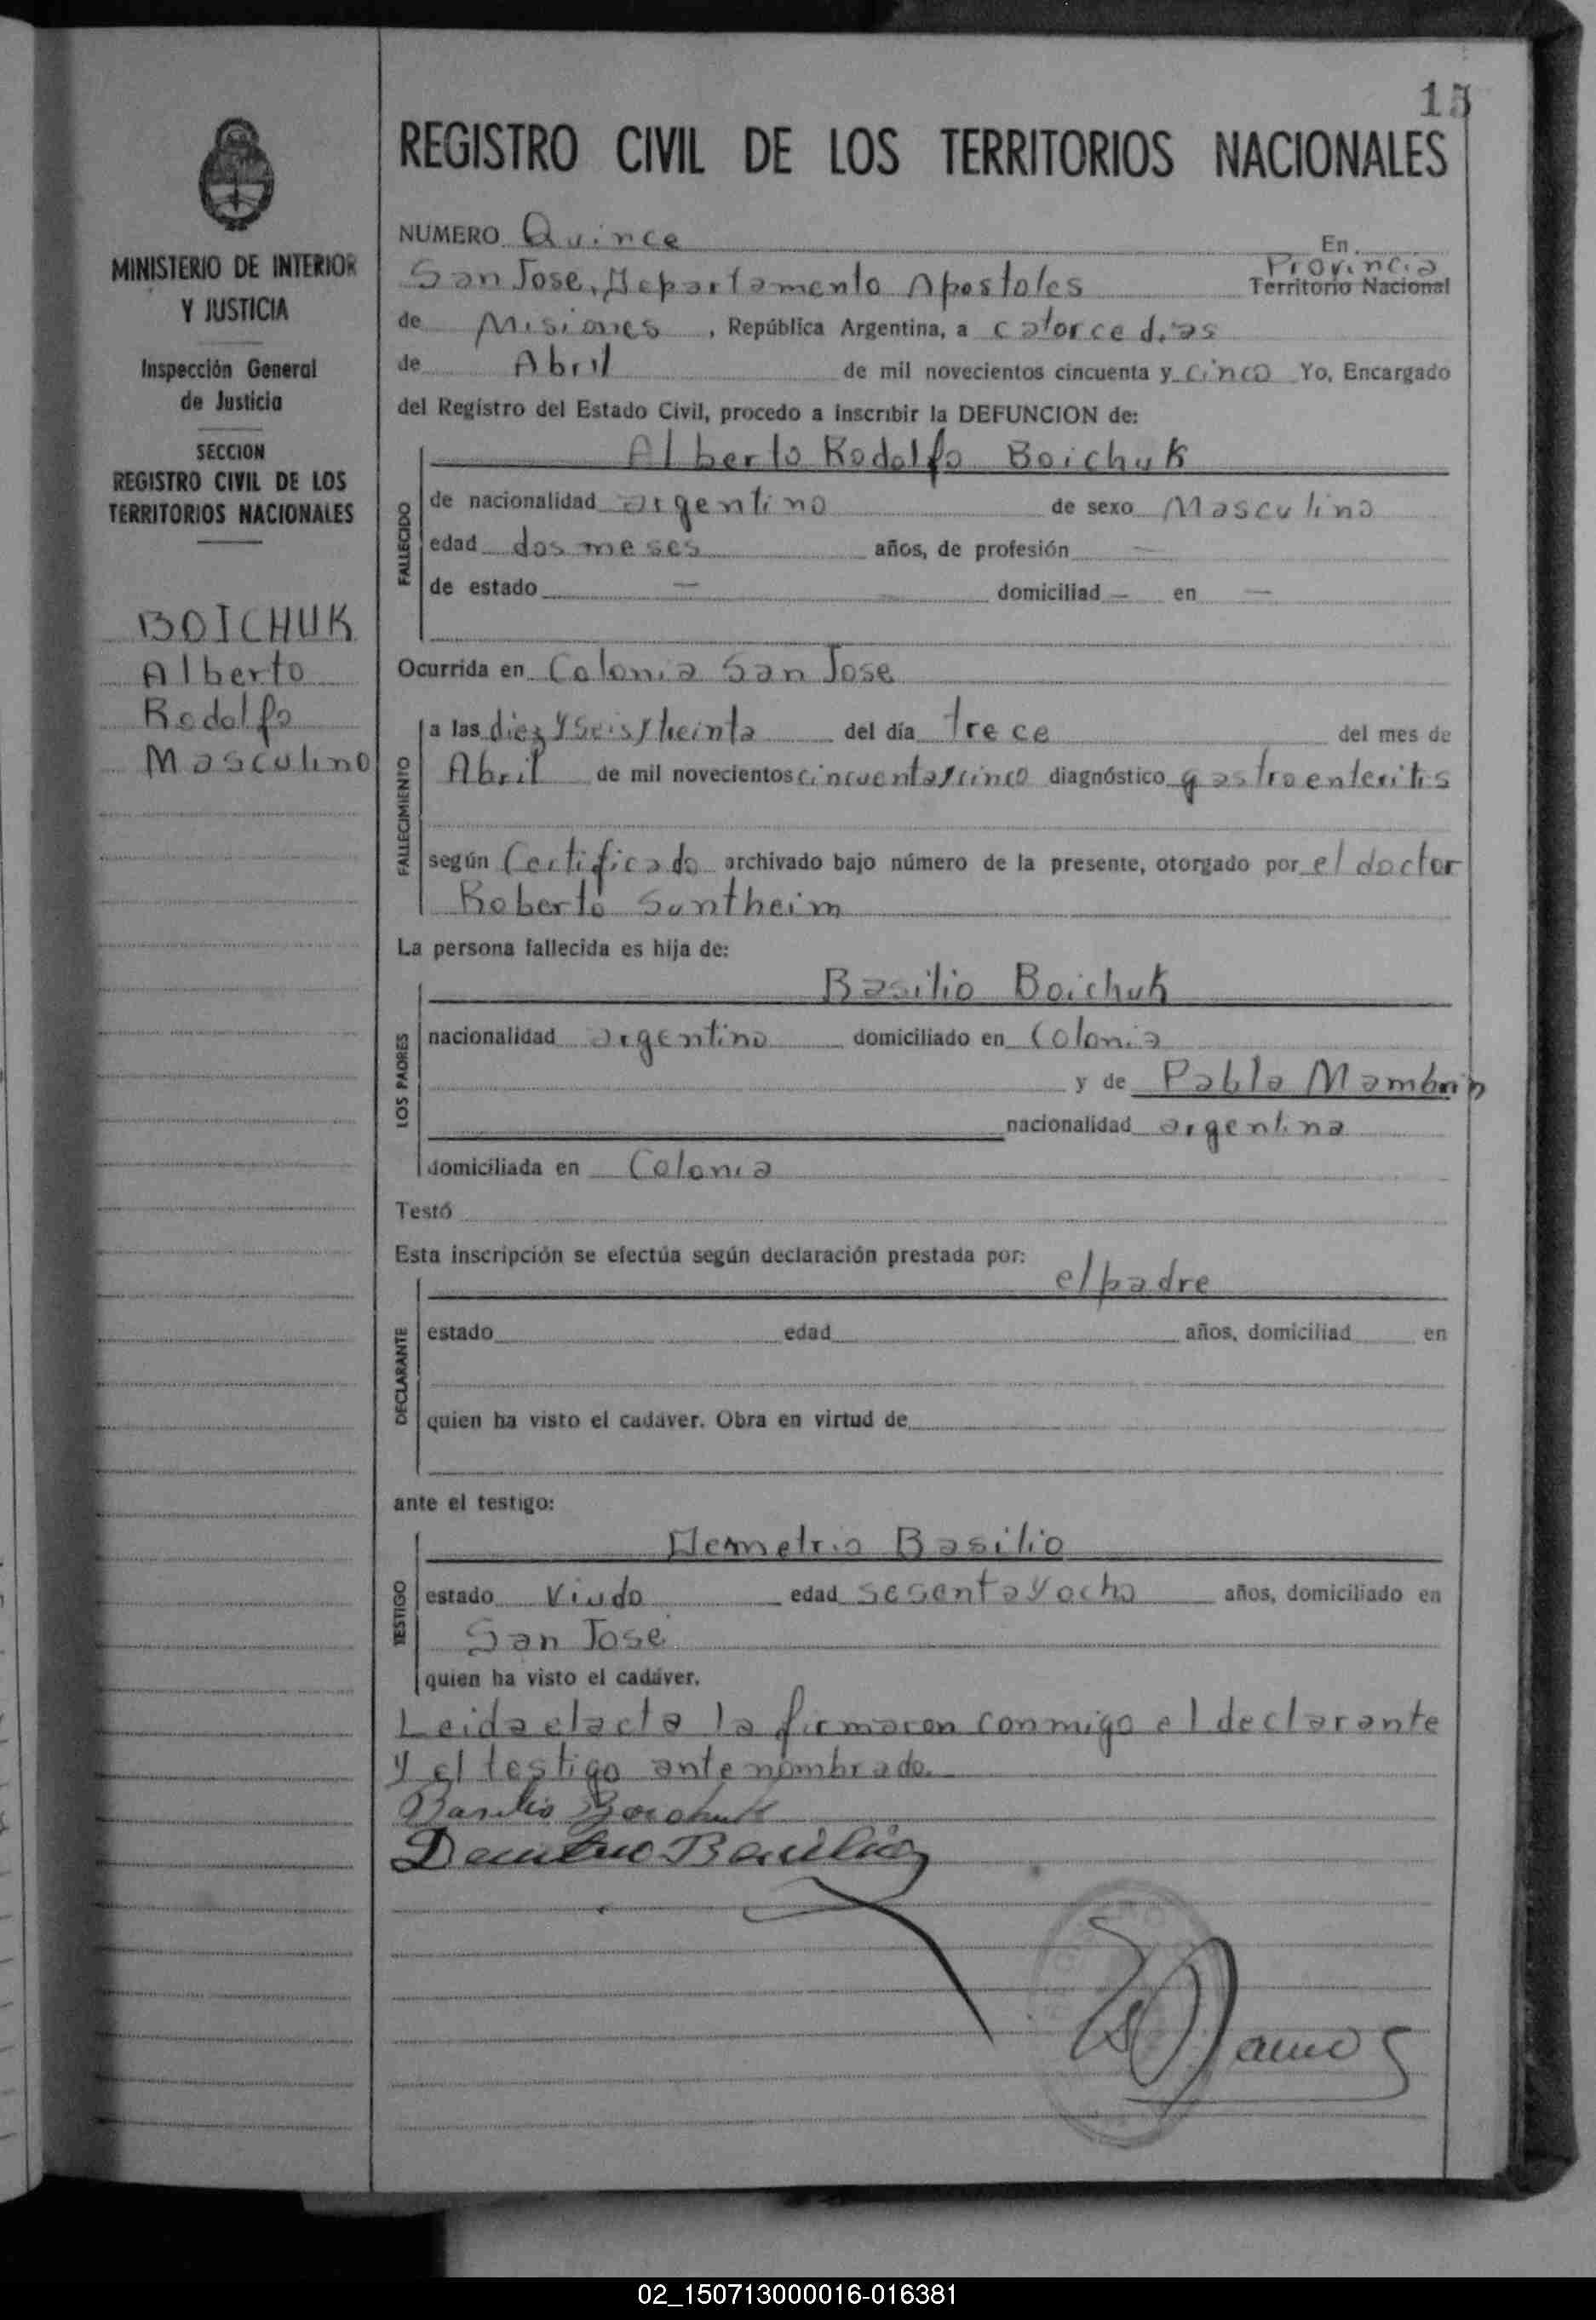 15
REGISTRO CIVIL DE LOS TERRITORIOS NACIONALES
MINISTERIO DE INTERIOR
Y JUSTICIA
Inspección General
de Justicia
SECCION
REGISTRO CIVIL DE LOS
TERRITORIOS NACIONALES
BOICHUK
Alberto
Rodolfo
Masculino
NUMERO Quince En
San Jose, Departamento Apostoles Provincia
Territorio Nacional
de Misiones, República Argentina, a catorce dias
de Abril de mil novecientos cincuenta y cinco Yo, Encargado
del Registro del Estado Civil, procedo a inscribir la DEFUNCION de:
Alberto Rodolfo Boichuk
FALLECIDO
de nacionalidad argentino de sexo Masculino
edad dos meses años, de profesión —
de estado — domiciliad — en —
Ocurrida en Colonia San Jose
FALLECIMIENTO
a las diez y seis y treinta del día trece del mes de
Abril de mil novecientos cincuenta y cinco diagnóstico gastroenteritis
según Certificado archivado bajo número de la presente, otorgado por el doctor
Roberto Suntheim
La persona fallecida es hija de:
Basilio Boichuk
LOS PADRES
nacionalidad argentino domiciliado en Colonia
y de Pabla Mambrin
nacionalidad argentina
domiciliada en Colonia
Testó
Esta inscripción se efectúa según declaración prestada por:
el padre
DECLARANTE
estado edad años, domiciliad en
quien ha visto el cadáver. Obra en virtud de
ante el testigo:
Demetrio Basilio
TESTIGO
estado Viudo edad sesenta y ocho años, domiciliado en
San Jose
quien ha visto el cadáver.
Leida el acta la firmaron conmigo el declarante
y el testigo antenombrado.
Basilio Boichuk
Demetrio Basilio
02_150713000016-016381